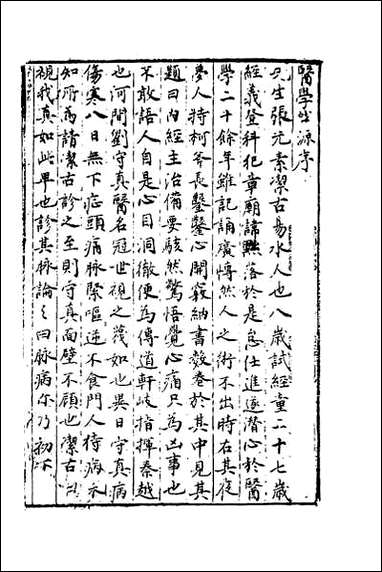 醫學啓源序
先生張元素潔古易水人也八歲試經童二十七歲
經義登科犯章廟諱黜落於是怠仕進遂潛心於醫
學二十餘年雖記誦廣博然人之術不出時右其夜
夢人持柯斧長鑿鑿心開竅納書數卷於其中見其
題曰内經主治備要駭然驚悟覺心痛只為凶事也
不敢語人自是心目洞徹便為傳道軒岐指揮秦越
也河間劉守真醫名冠世視之蔑如也異日守真病
傷寒八日無下症頭痛脉緊嘔逆不食門人侍病未
知所為請潔古診之至則守真面壁不顧也潔古曰
視我真如此卑也診其脉論之曰脉病尔乃初